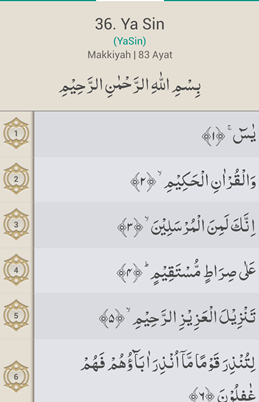 36. Ya Sin
(YaSin)
Makkiyah | 83 Ayat
بِسْمِ اللّٰهِ الرَّحْمٰنِ الرَّحِيْمِ
1 يٰسٓ ۚ ﴿۱﴾
2 وَالْقُرْاٰنِ الْحَكِيْمِ ۙ ﴿۲﴾
3 اِنَّكَ لَمِنَ الْمُرْسَلِيْنَ ۙ ﴿۳﴾
4 عَلٰى صِرَاطٍ مُّسْتَقِيْمٍ ؕ ﴿۴﴾
5 تَنْزِيْلَ الْعَزِيْزِ الرَّحِيْمِ ۙ ﴿۵﴾
6 لِتُنْذِرَ قَوْمًا مَّاۤ اُنْذِرَ اٰبَآؤُهُمْ فَهُمْ
غٰفِلُوْنَ ﴿۶﴾